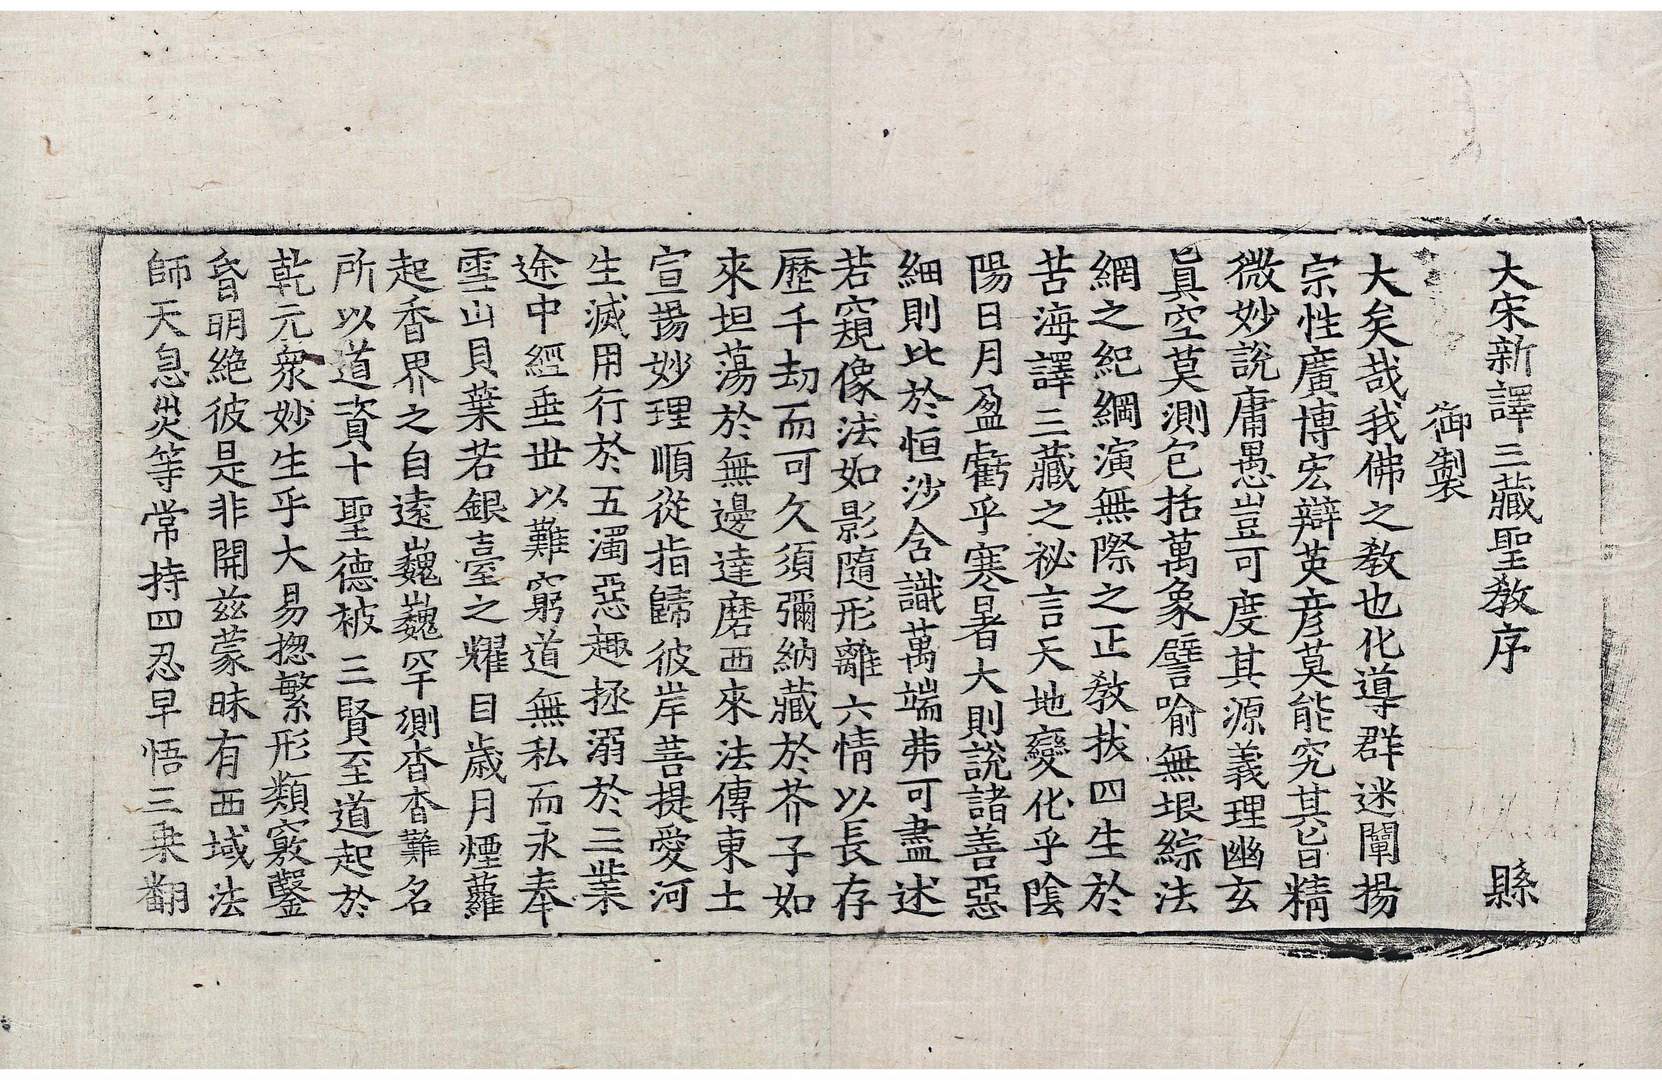 大宋新譯三藏聖教序 縣
御製
大矣哉我佛之教也化導群迷闡揚
宗性廣博宏辯英彦莫能究其旨精
微妙說庸愚豈可度其源義理幽玄
眞空莫測包括萬象譬喻無垠綜法
網之紀綱演無際之正教拔四生於
苦海譯三藏之祕言天地變化乎陰
陽日月盈虧乎寒暑大則說諸善惡
細則比於恒沙含識萬端弗可盡述
若窺像法如影隨形離六情以長存
歷千劫而可久須彌納藏於芥子如
來坦蕩於無邊達磨西來法傳東土
宣揚妙理順從指歸彼岸菩提愛河
生滅用行於五濁惡趣拯溺於三業
途中經垂世以難窮道無私而永奉
雪山貝葉若銀臺之耀目歲月煙蘿
起香界之自遠巍巍罕測杳杳難名
所以道資十聖德被三賢至道起於
乾元衆妙生乎大易揔繁形類竅鑿
昏明絕彼是非開兹蒙昧有西域法
師天息灾等常持四忍早悟三乘翻